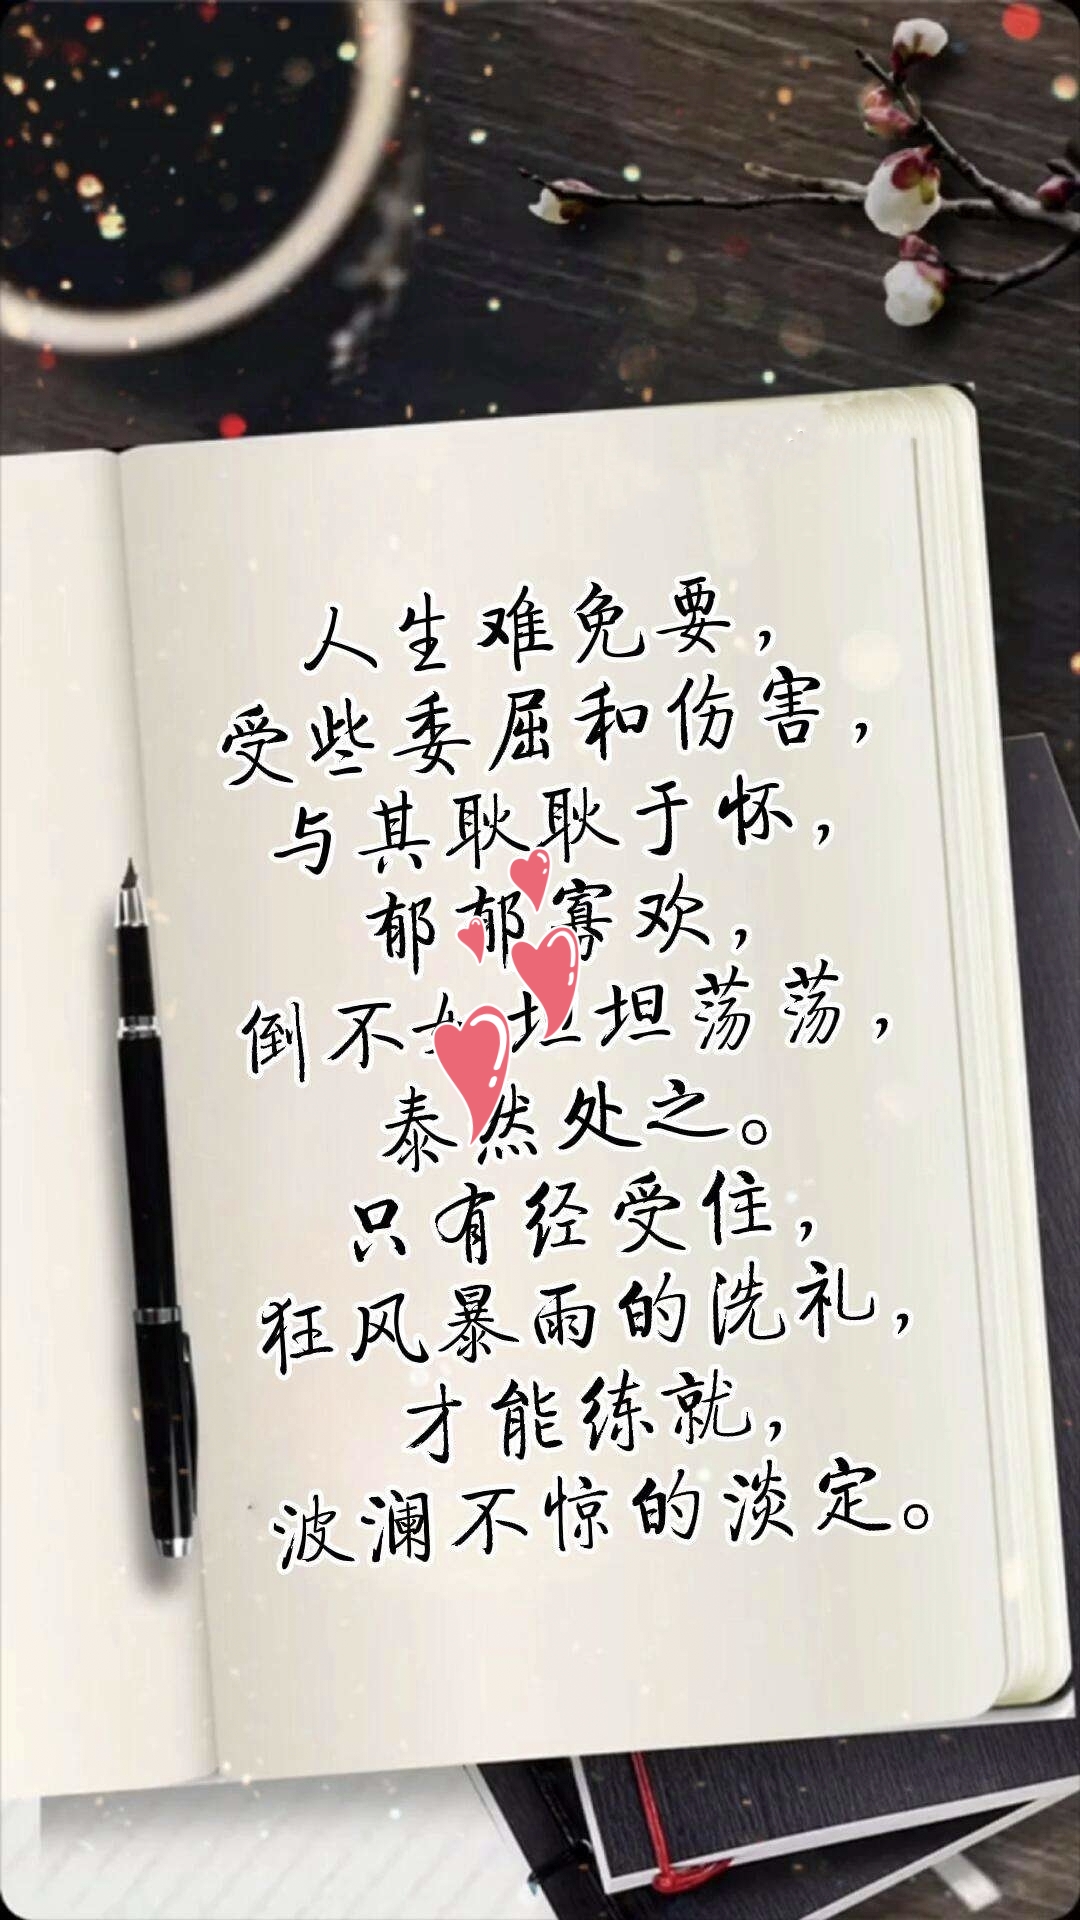 人生难免要，
受些委屈和伤害，
与其耿耿于怀，
郁郁寡欢，
倒不如坦坦荡荡，
泰然处之。
只有经受住，
狂风暴雨的洗礼，
才能练就，
波澜不惊的淡定。